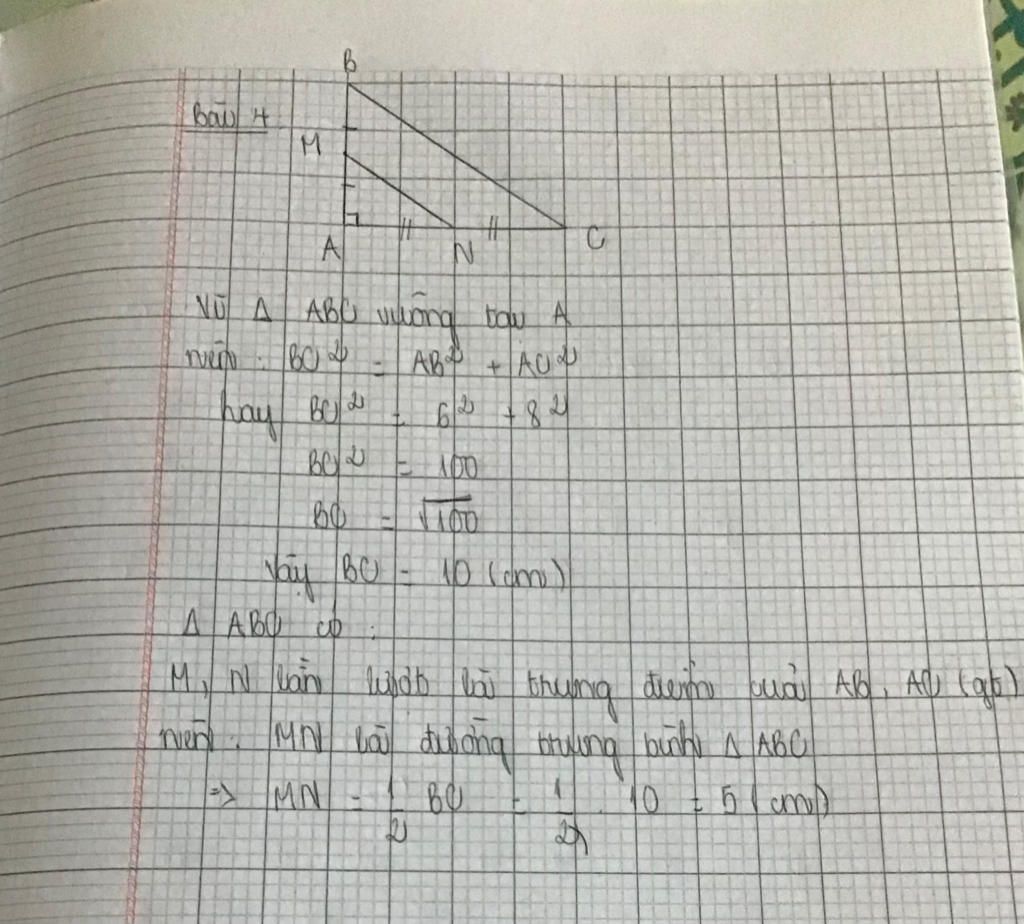 B
Bài 4
M
A N C
Vì Δ ABC vuông tại A
nên : BC² = AB² + AC²
hay BC² = 6² + 8²
BC² = 100
BC = √100
Vậy BC = 10 (cm)
Δ ABC có :
M, N lần lượt là trung điểm của AB, AC (gt)
nên : MN là đường trung bình Δ ABC
=> MN = 1/2 BC = 1/2 . 10 = 5 (cm)